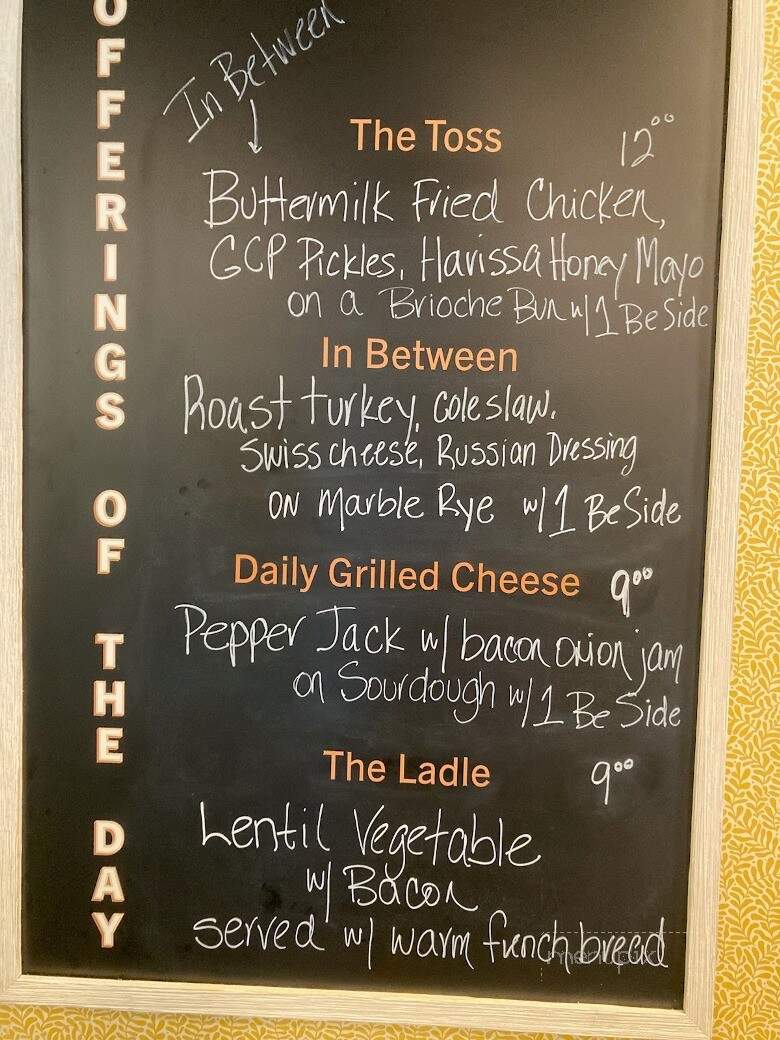 OFFERINGS OF THE DAY
In Between
The Toss 12⁰⁰
Buttermilk Fried Chicken,
GCP Pickles, Harissa Honey Mayo
on a Brioche Bun w/1 BeSide
In Between
Roast turkey, coleslaw,
Swiss cheese, Russian Dressing
on Marble Rye w/1 BeSide
Daily Grilled Cheese 9⁰⁰
Pepper Jack w/ bacon onion jam
on Sourdough w/1 BeSide
The Ladle 9⁰⁰
Lentil Vegetable
w/ Bacon
served w/ warm french bread
menupix